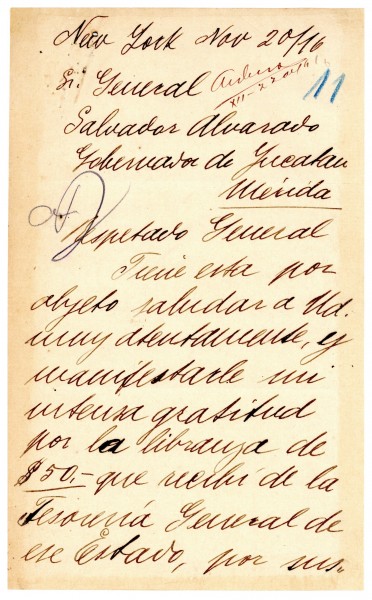 New York Nov 20/16
Sr. General
11
Salvador Alvarado
Gobernador de Yucatan
Mérida
Respetado General
Tiene esta por
objeto saludar a Ud.
muy atentamente, y
manifestarle mi
intensa gratitud
por la libranza de
$50.- que recibí de la
Tesorería General de
ese Estado, por sus